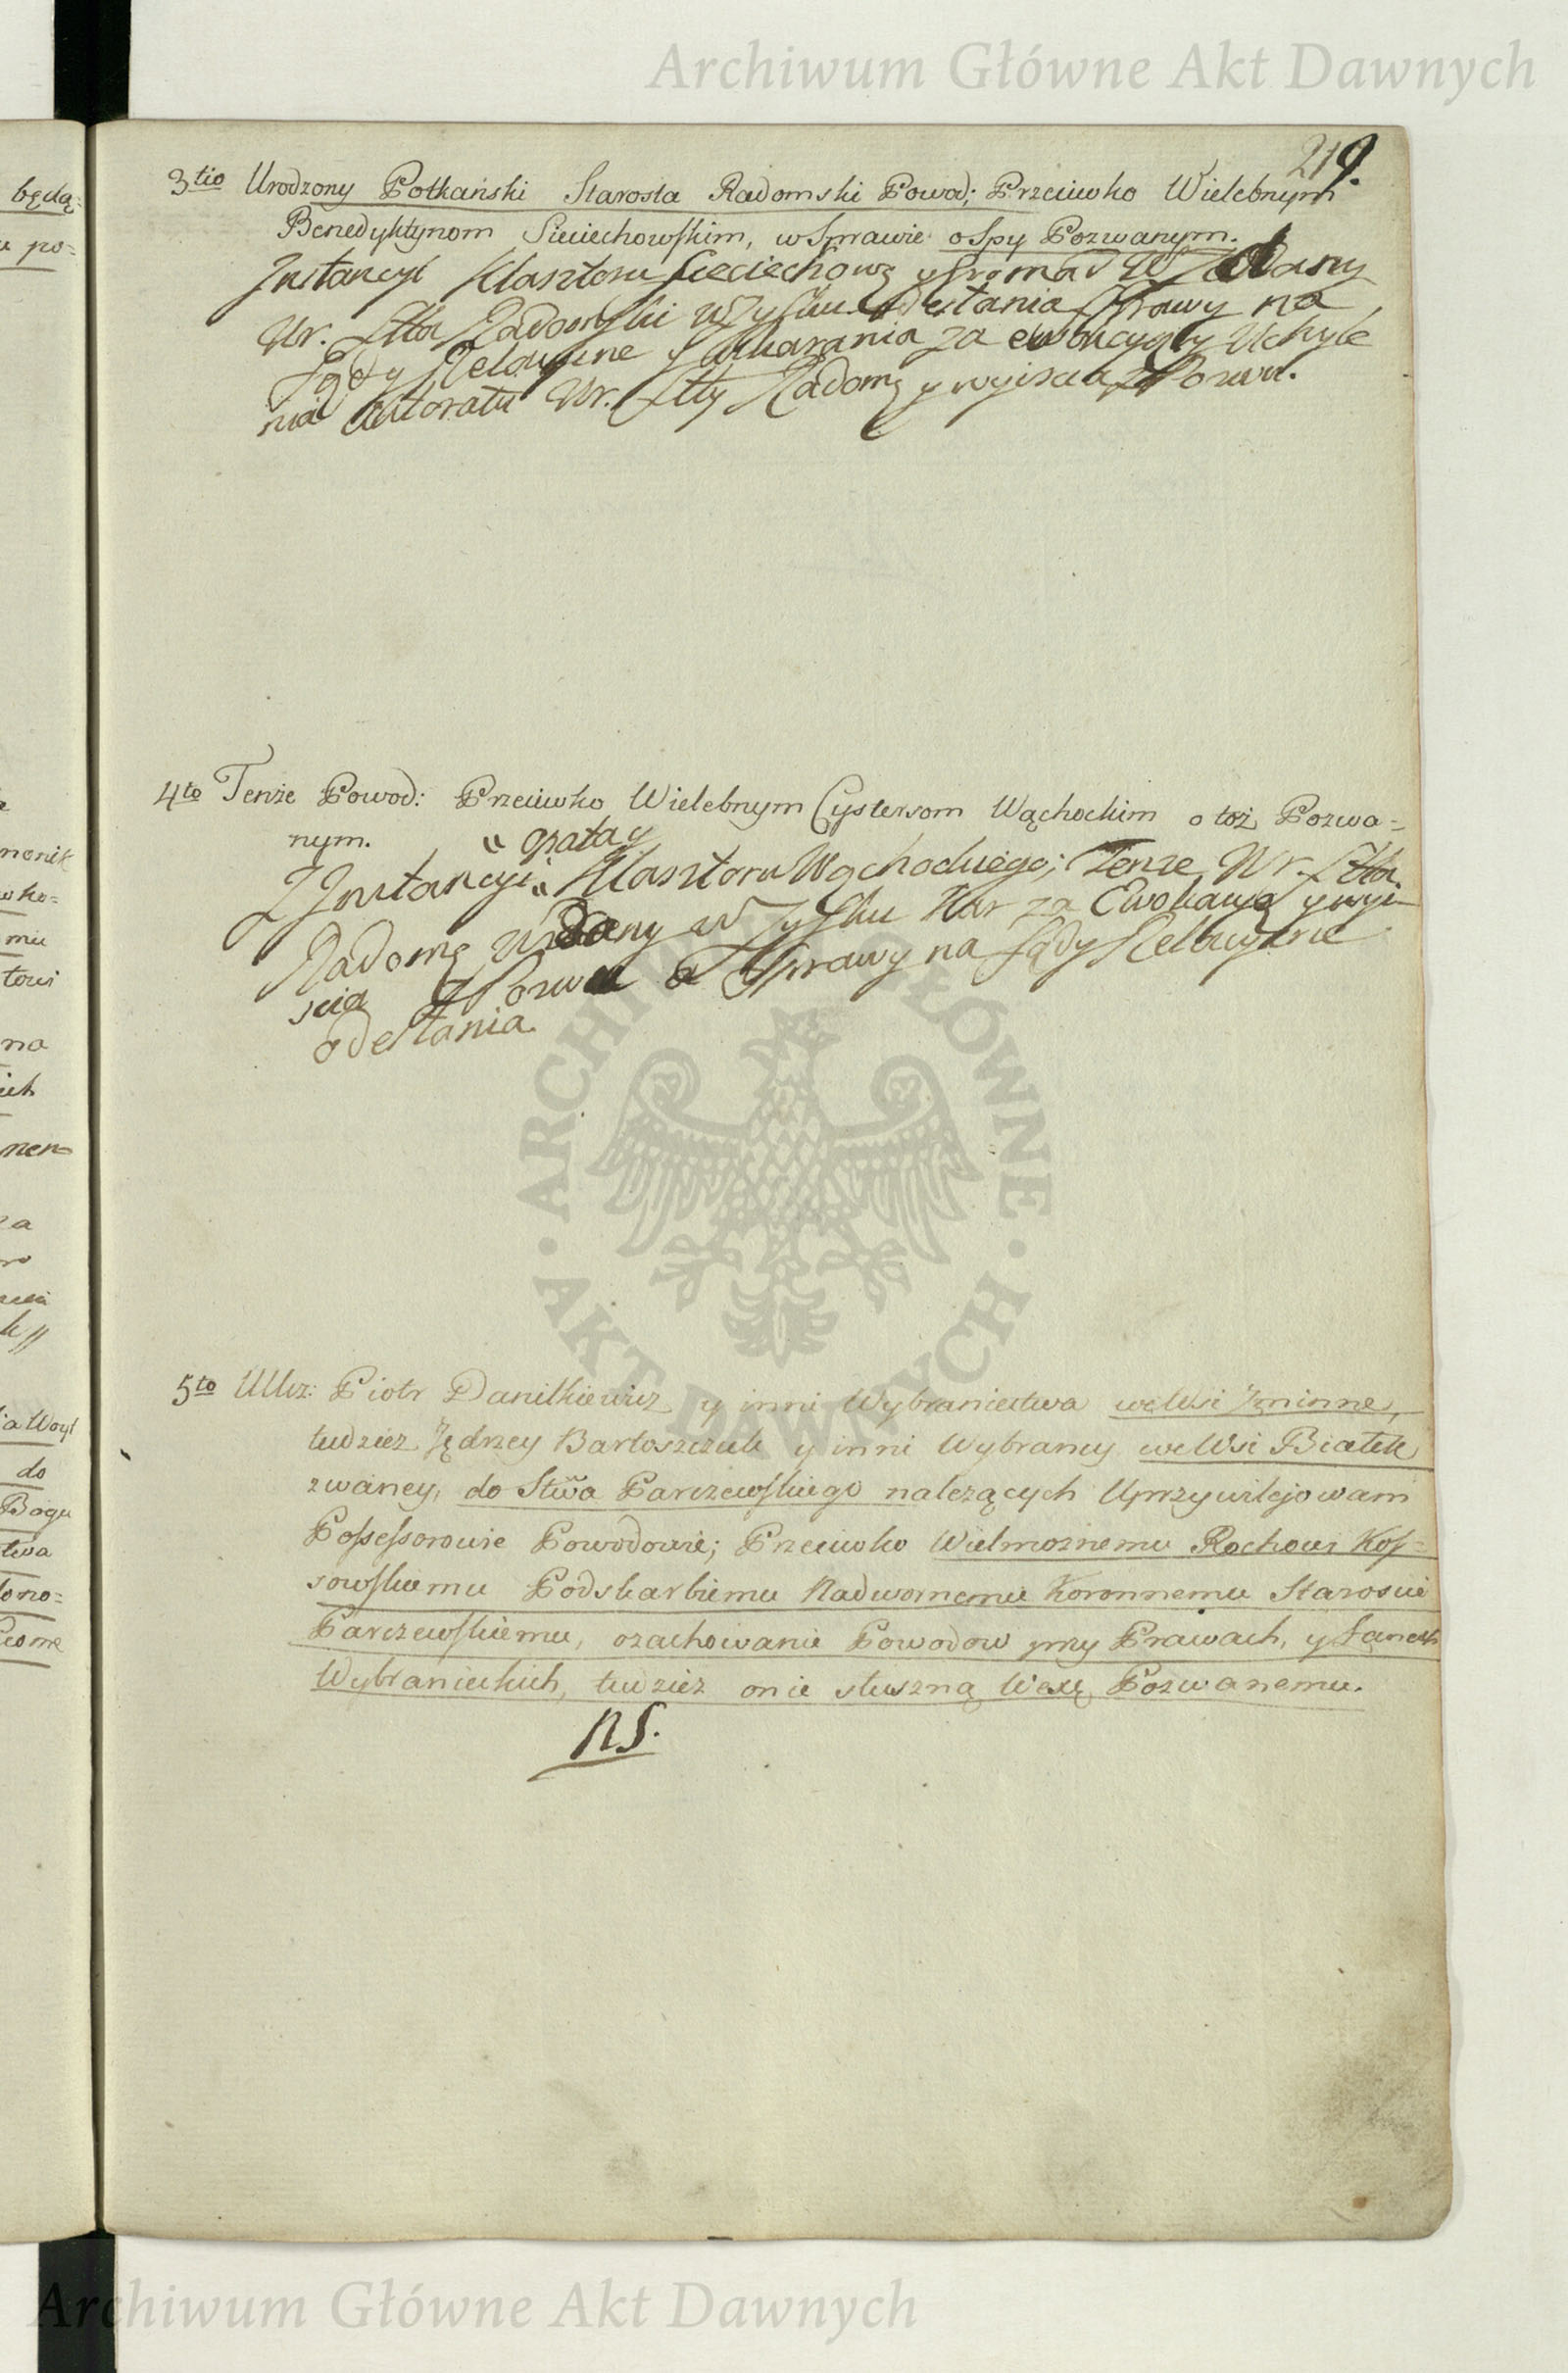 Archiwum Główne Akt Dawnych
219.
3tio Urodzony Potkański Starosta Radomski Powod; Przeciwko Wielebnym
Benedyktynom Sieciechowskim, w Sprawie o Spy Pozwanym.
Instancyi Klasztoru Sieciechowę y Gromad
Ur. Stta Radomski w Zysku odesłania Sprawy na
Sądy Relacyine y ukarania za ewokacyą y Uchyle
nia actoratu Ur. Stty Radomę y wyiscia z Pozwu.
4to Tenże Powod: Przeciwko Wielebnym Cystersom Wąchockim o toż Pozwa=
nym.
" opata y
Z Instancyi " Klasztoru Wąchockiego; Tenze Ur. Stta
Radomę Wzdany w Zysku Kar za Ewokacyą y wyi-
scia z Pozwu a Sprawy na Sądy Relacyine
odesłania.
5to UUcz: Piotr Daniłkiewicz y inni Wybraniectwa we Wsi Zminne,
tudziez Jędrzey Bartoszczuk y inni Wybrancy we Wsi Białek
zwaney, do Sttwa Parczewskiego nalezących Uprzywilejowani
Possessorowie Powodowie; Przeciwko Wielmoznemu Rochowi Kos=
sowskiemu Podskarbiemu Nadwornemu Koronnemu Staroscie
Parczewskiemu, o zachowanie Powodow przy Prawach, y Łanach
Wybranieckich, tudziez o nie słuszną Wexę Pozwanemu.
NS.
ARCHIWUM GŁÓWNE · AKT DAWNYCH ·
Archiwum Główne Akt Dawnych